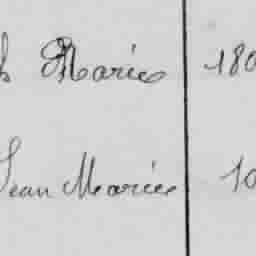 h Marie 180
Jean Marie 10